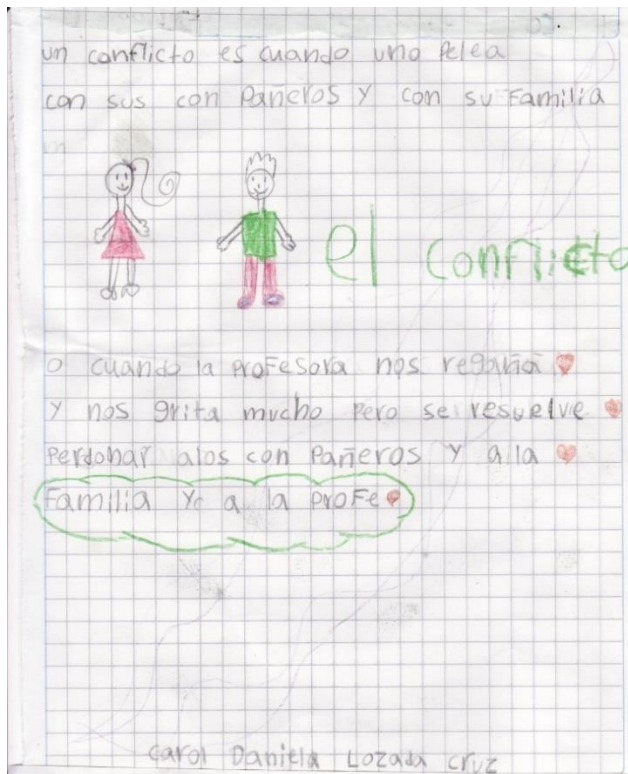 un conflicto es cuando uno Pelea
con sus con Pañeros Y con su Familia
el conflicto
o cuando la ProFesora nos regaña
Y nos grita mucho Pero se resuelve
Perdonar alos con Pañeros Y a la
Familia Y a la ProFe
Carol Daniela Lozada cruz